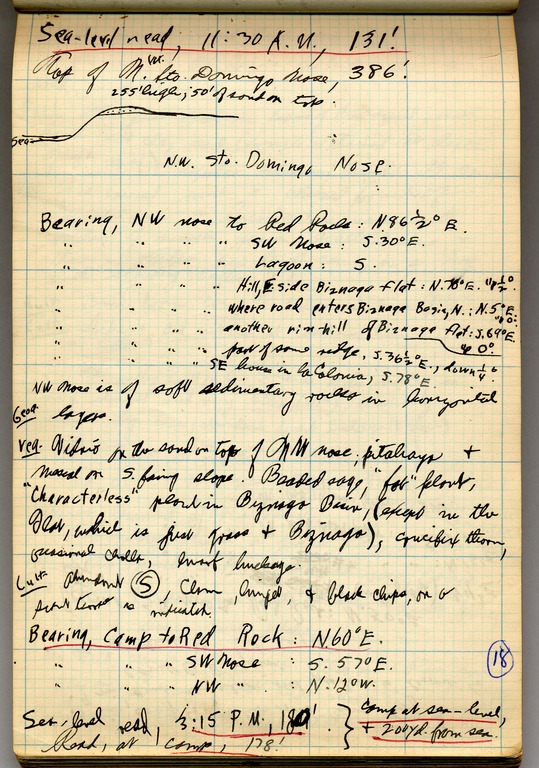 Sea-level read, 11:30 A.M., 131'
Top of N.W. Sto. Domingo Nose, 386'
255' high; 50' of sand on top.
Sea
N.W. Sto. Domingo Nose.
Bearing, NW nose to Red Rock: N86½°E.
" " " " SW Nose: S.30°E.
" " " " Lagoon: S.
" " " " Hill, E side Biznaga flat: N.78°E. up ½°
" " " " where road enters Biznaga Basin, N.: N.5°E. up 0°
" " " " another rim-hill of Biznaga flat: S.69°E. up 0°
" " " " part of same ridge, S.36½°E., down ¼°
" " " " SE house in la Colonia, S.78°E.
NW nose is of soft sedimentary rocks in horizontal
Geol. layers.
Veg. Vidrio on the sand on top of NW nose, pitahaya +
mescal on S. facing slope. Beaded sage, "fat" plant,
"Characterless" plant in Biznaga Basin, (except in the
flat, which is just grass + Biznaga), crucifix thorn,
occasional cholla,
Cult. Abundant (5), Clam, hinged, + black chips, on a
is indicated
Bearing, Camp to Red Rock: N.60°E.
" " " SW Nose : S.57°E.
" " " NW " : N.12°W.
18
Sea-level read, 3:15 P.M., 180'.
Read, at camp, 178'
} Camp at sea-level,
+ 200 yd. from sea.